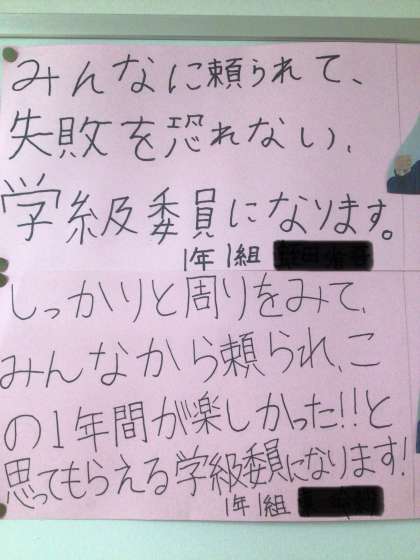 みんなに頼られて、
失敗を恐れない、
学級委員になります。
1年1組
しっかりと周りをみて、
みんなから頼られ、こ
の1年間が楽しかった!!と
思ってもらえる学級委員になります!
1年1組